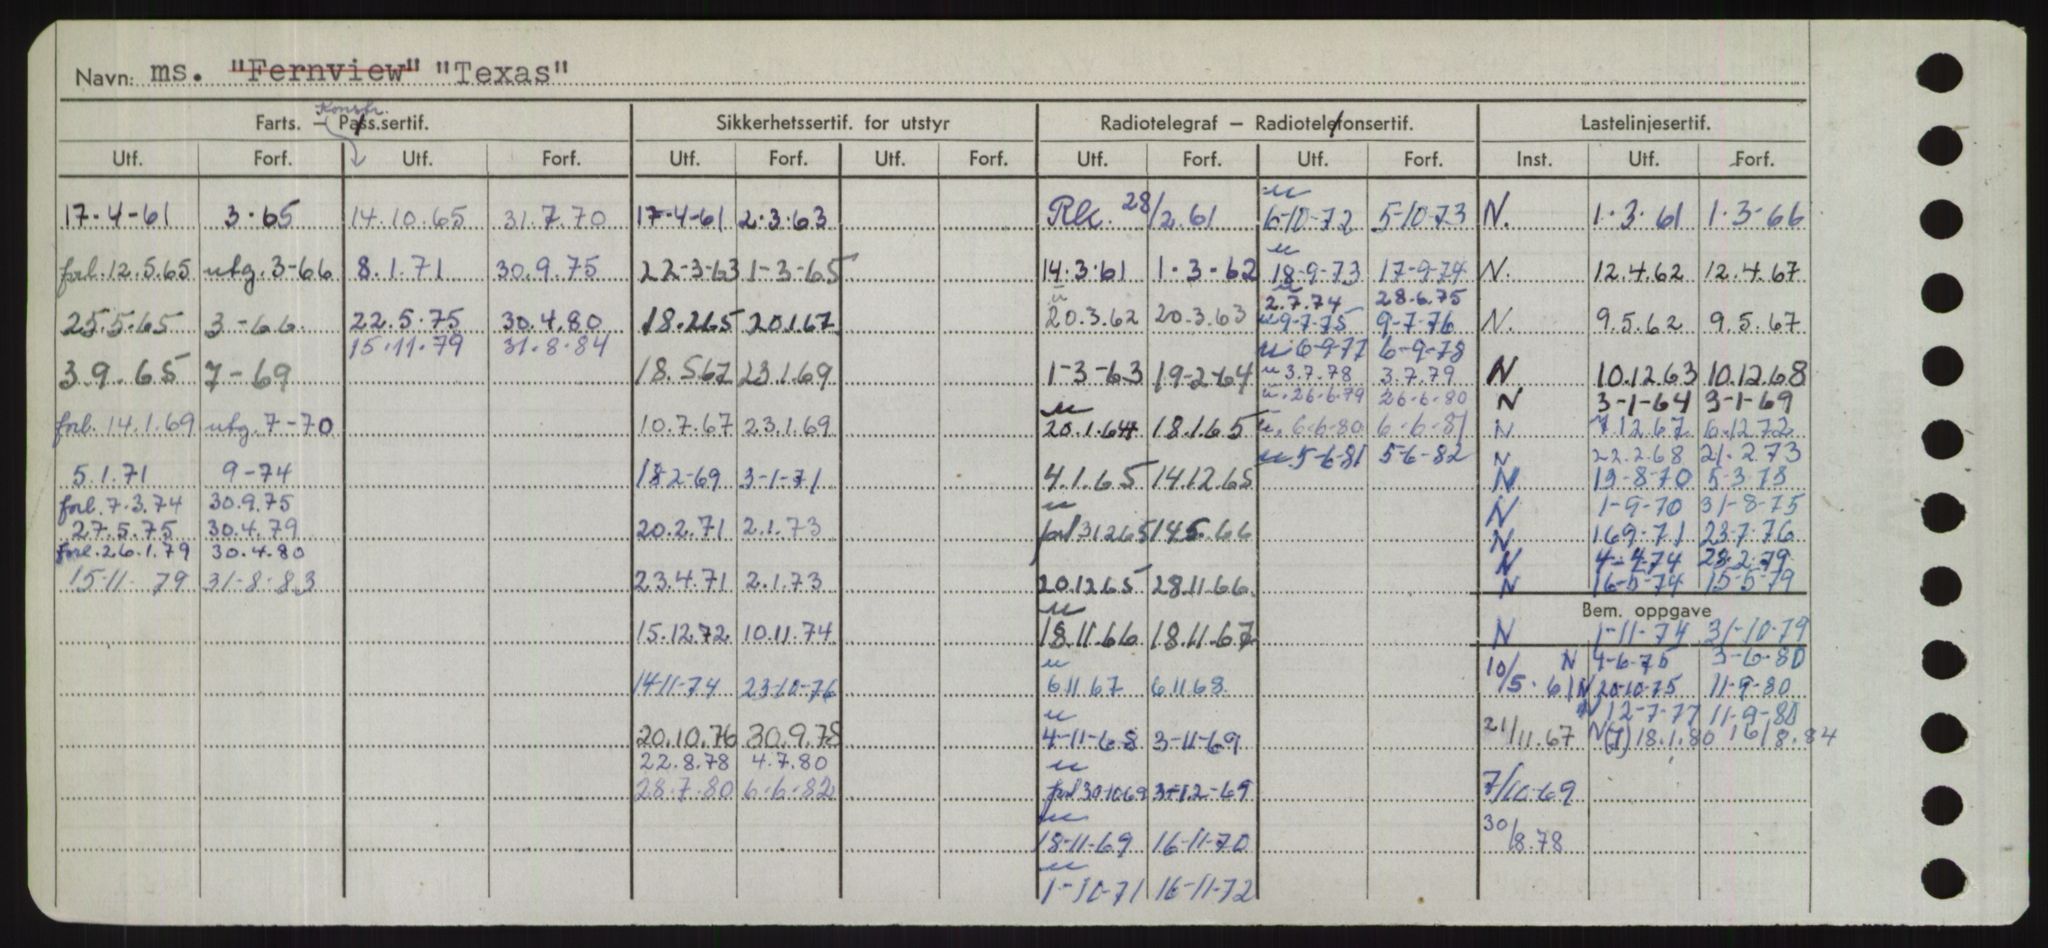 Navn: ms. "Fernview" "Texas"
Konstr.
Farts. – Pass.sertif. Sikkerhetssertif. for utstyr Radiotelegraf – Radiotelefonsertif. Lastelinjesertif.
Utf. Forf. Utf. Forf. Utf. Forf. Utf. Forf. Utf. Forf. Utf. Forf. Inst. Utf. Forf.
17-4-61 3.65 14.10.65 31.7.70 17-4-61 2.3.63 Rk. 28/2.61 6-10-72 5-10-73 N. 1.3.61 1.3-66
forl.12.5.65 utg.3-66 8.1.71 30.9.75 22-3-63 1-3-65 14.3.61 1.3-62 18-9-73 17-9-74 N. 12.4.62 12.4.67
2.7.74 28.6.75
25.5.65 3-66 22.5.75 30.4.80 18.2.65 20.1.67 20.3.62 20.3.63 9-7-75 9-7-76 N. 9.5.62 9.5.67
15.11.79 31.8.84 6-9-77 6-9-78
3.9.65 7-69 18.5.67 23.1.69 1-3-63 19-2-64 3.7.78 3.7.79 N. 10.12.63 10.12.68
26.6.79 26.6.80 N 3-1-64 3-1-69
forl.14.1.69 utg.7-70 10.7.67 23.1.69 20.1.64 18.1.65 6.6.80 6-6-81 N 7.12.67 6.12.72
5-6-81 5-6-82 N 22.2.68 21.2.73
5.1.71 9-74 18-2-69 3-1-71 4.1.65 14.12.65 N 19-8-70 5-3-75
forl.7.3.74 30.9.75 N 1-9-70 31-8-75
27.5.75 30.4.79 20.2.71 2.1.73 forl 31.12.65 14.5.66 N 16.9-71 23-7-76
forl.26.1.79 30.4.80 N 4-4-74 28.2.79
15-11-79 31-8-83 23.4.71 2.1.73 20.12.65 28.11.66 N 16-5-74 15-5-79
Bem. oppgave
15.12.72 10.11.74 18.11.66 18.11.67 N 1-11-74 31-10-79
N 4-6-75 3-6-80
14-11-74 23-10-76 6.11.67 6.11.68 10/5.61 N 20-10-75 11-9-80
N 12-7-77 11-9-80
20.10.76 30.9.78 4-11-68 3-11-69 21/11.67 N (J) 18.1.80 16/8.84
22.8.78 4.7.80
28.7.80 6.6.82 forl 30-10-69 3-12-69 7/10-69
18-11-69 16-11-70 30/8.78
1-10-71 16-11-72